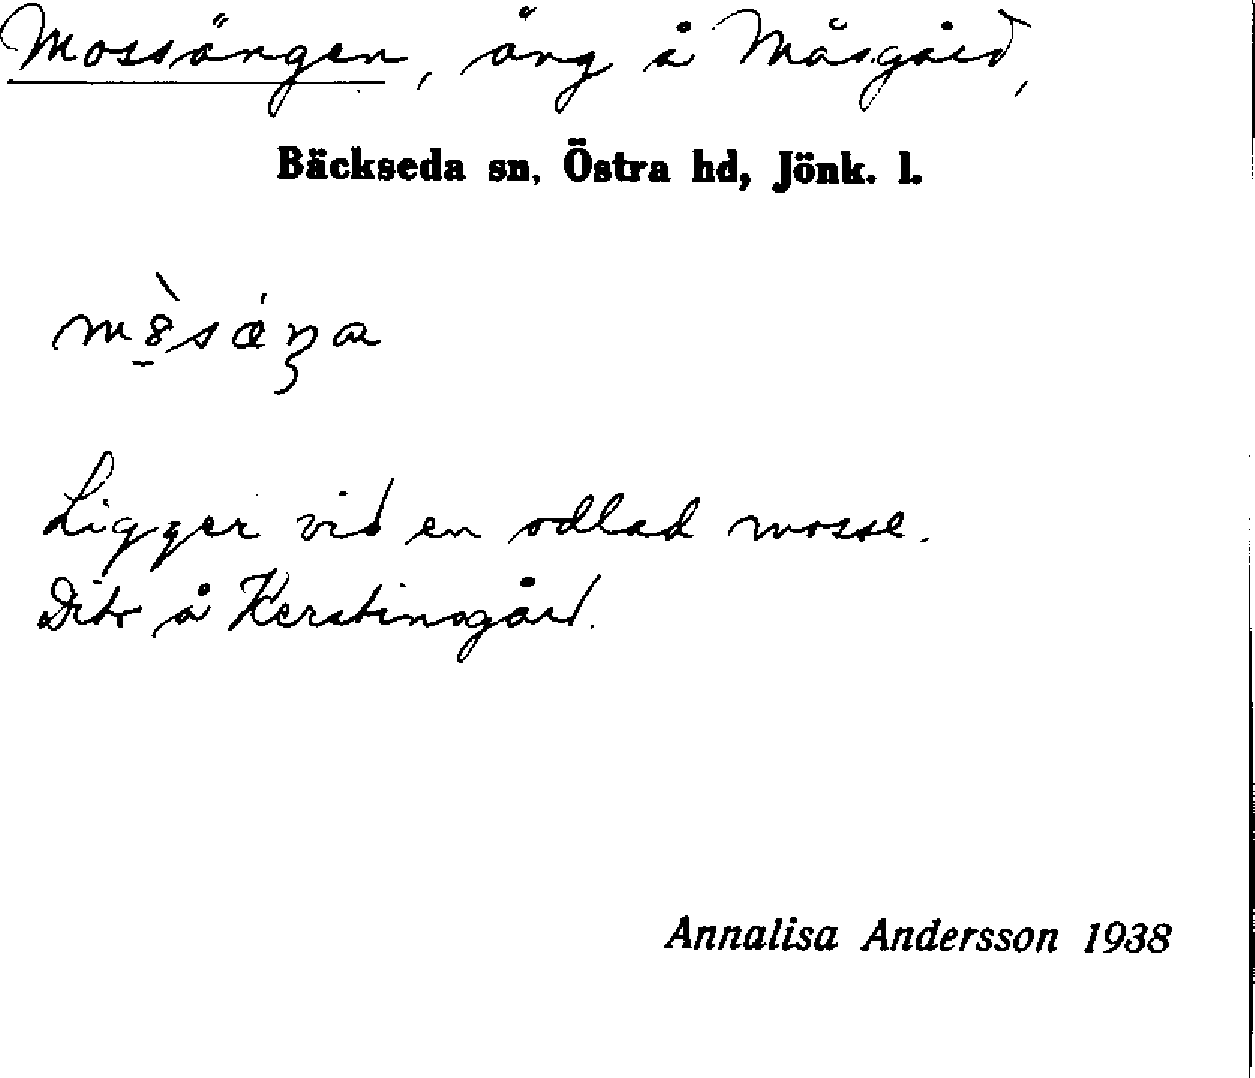 Mossängen, äng å Måsgård,
Bäckseda sn, Östra hd, Jönk. l.
Ligger vid en odlad mosse.
Dito å Kerstinsgård.
Annalisa Andersson 1938